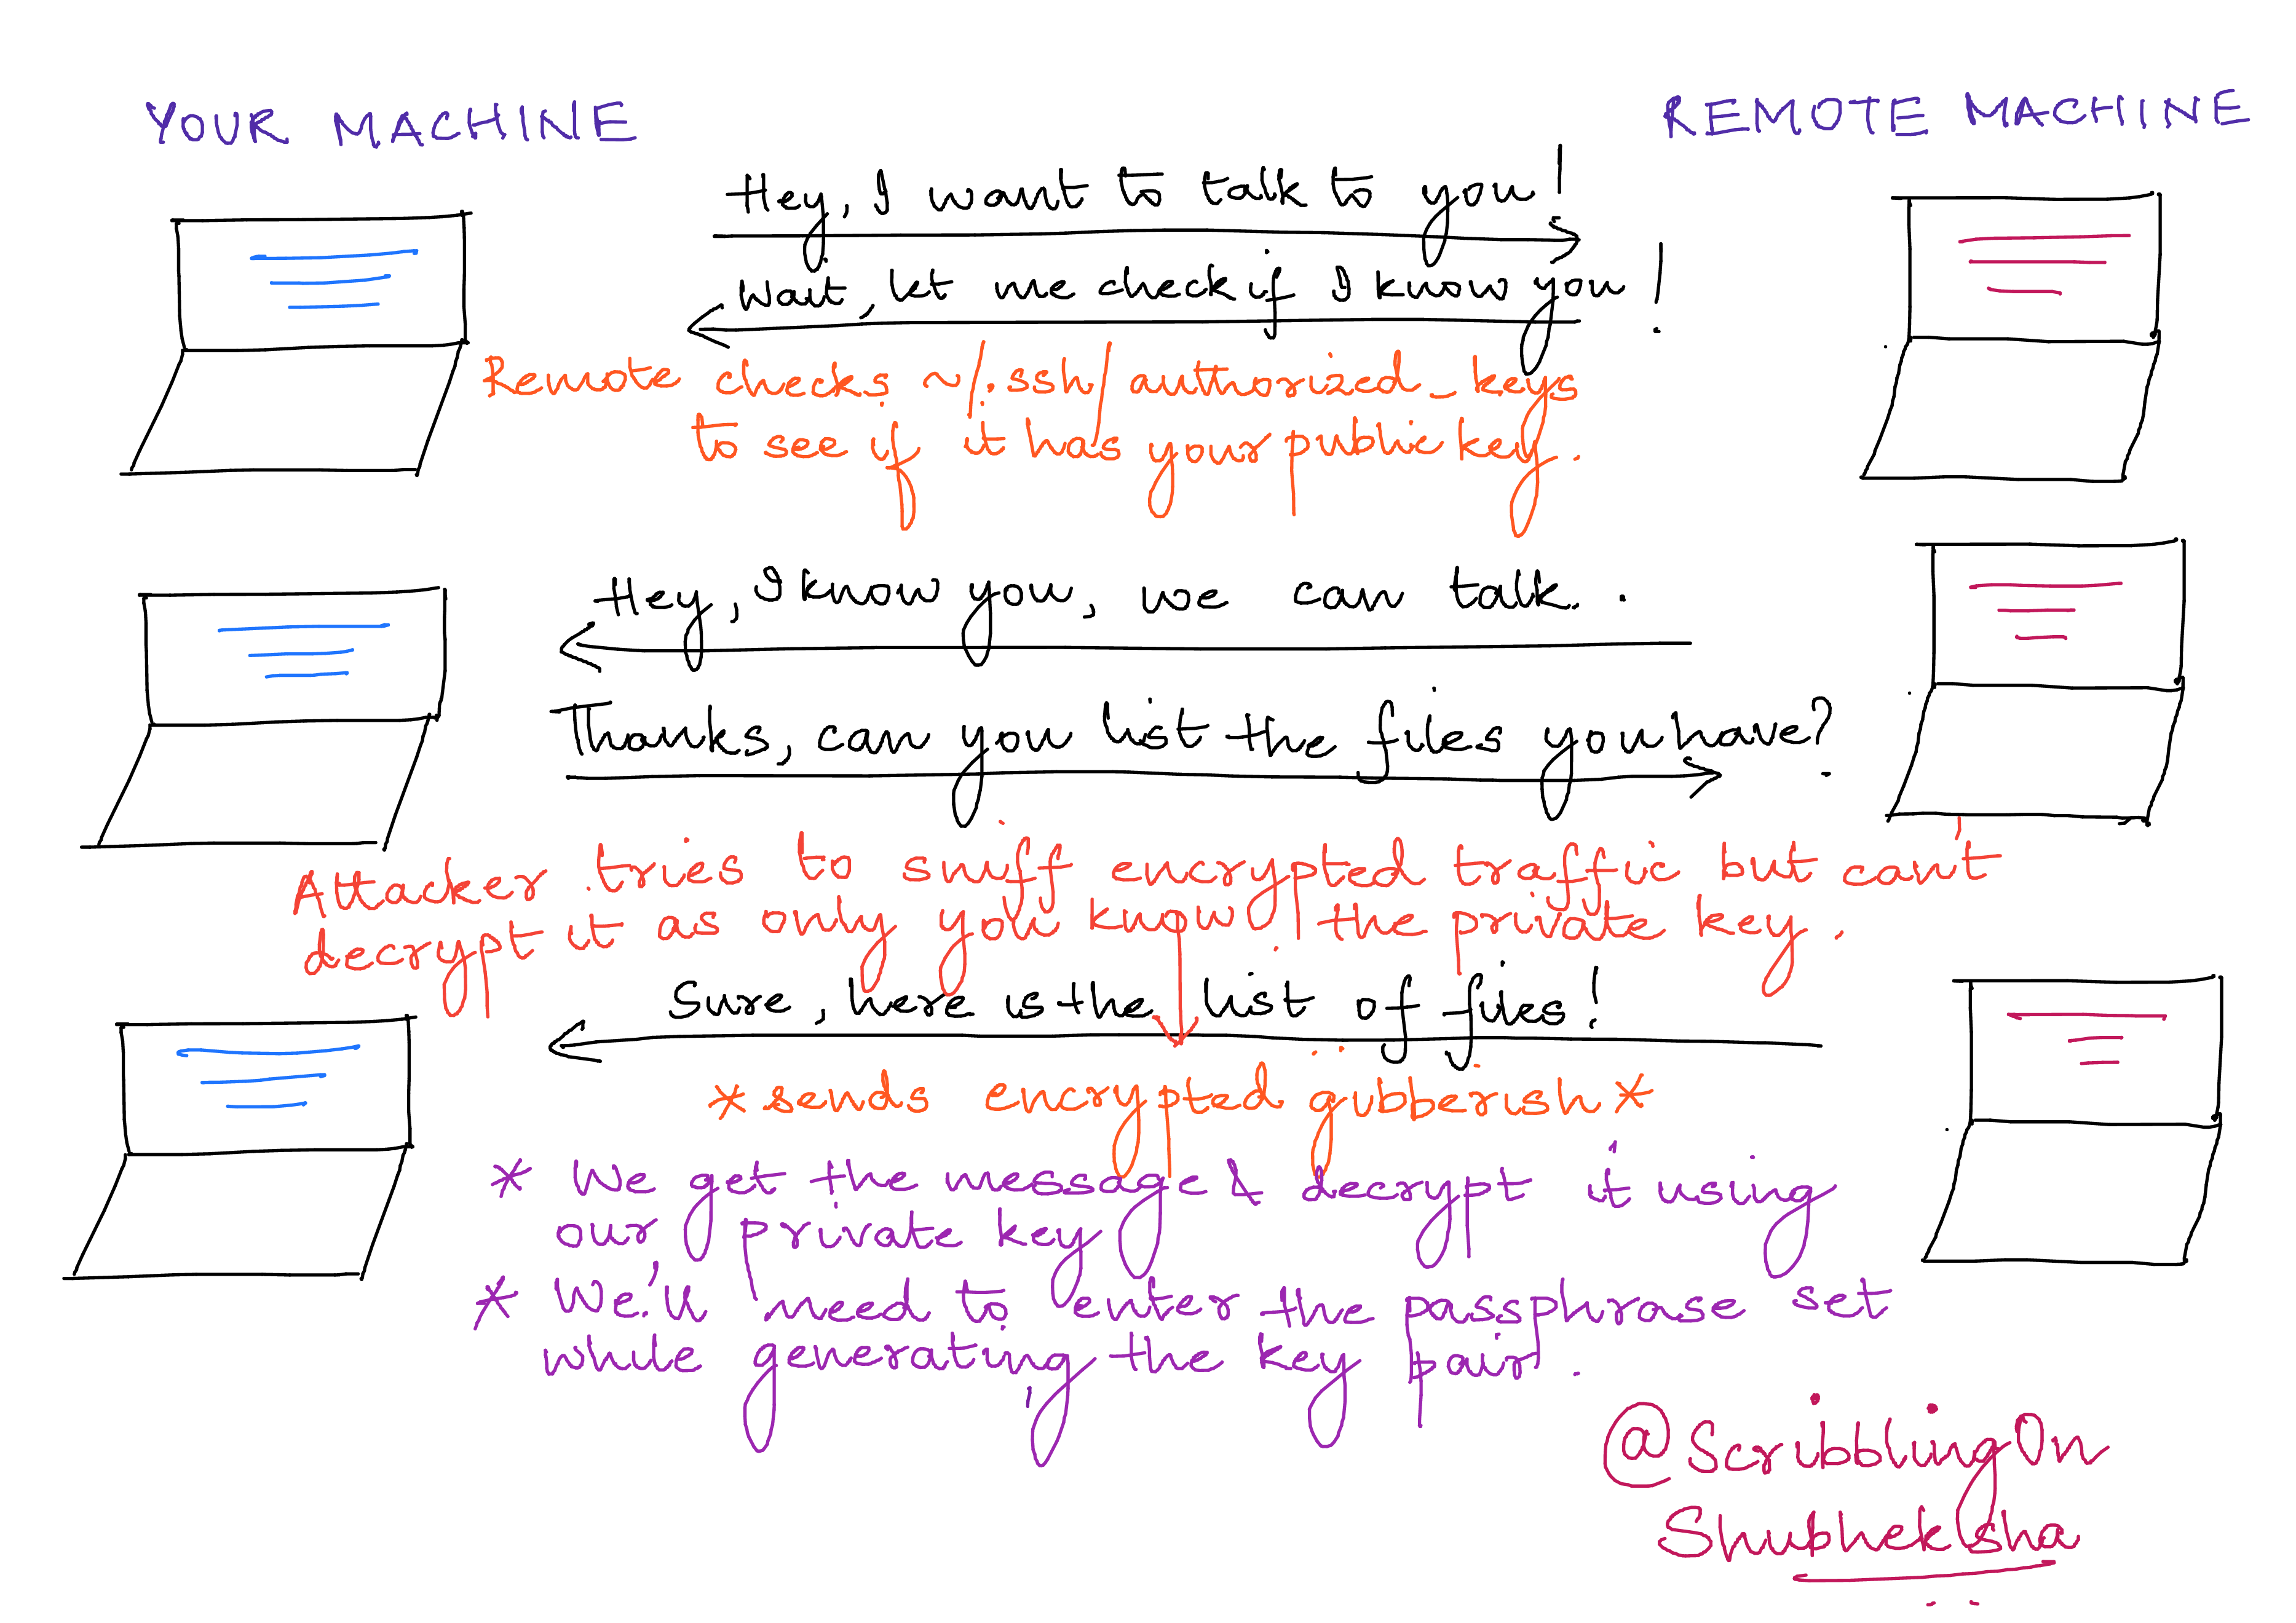 YOUR MACHINE
REMOTE MACHINE
Hey, I want to talk to you!
Wait, let me check if I know you!
Remote checks ~/.ssh/authorized_keys
to see if it has your public key.
Hey, I know you, we can talk.
Thanks, can you list the files you have?
Attacker tries to sniff encrypted traffic but can't
decrypt it as only you know the private key.
Sure, here is the list of files!
*sends encrypted gibberish*
* We get the message & decrypt it using
our private key
* We'll need to enter the passphrase set
while generating the key pair.
@ScribblingOn
Shubheksha